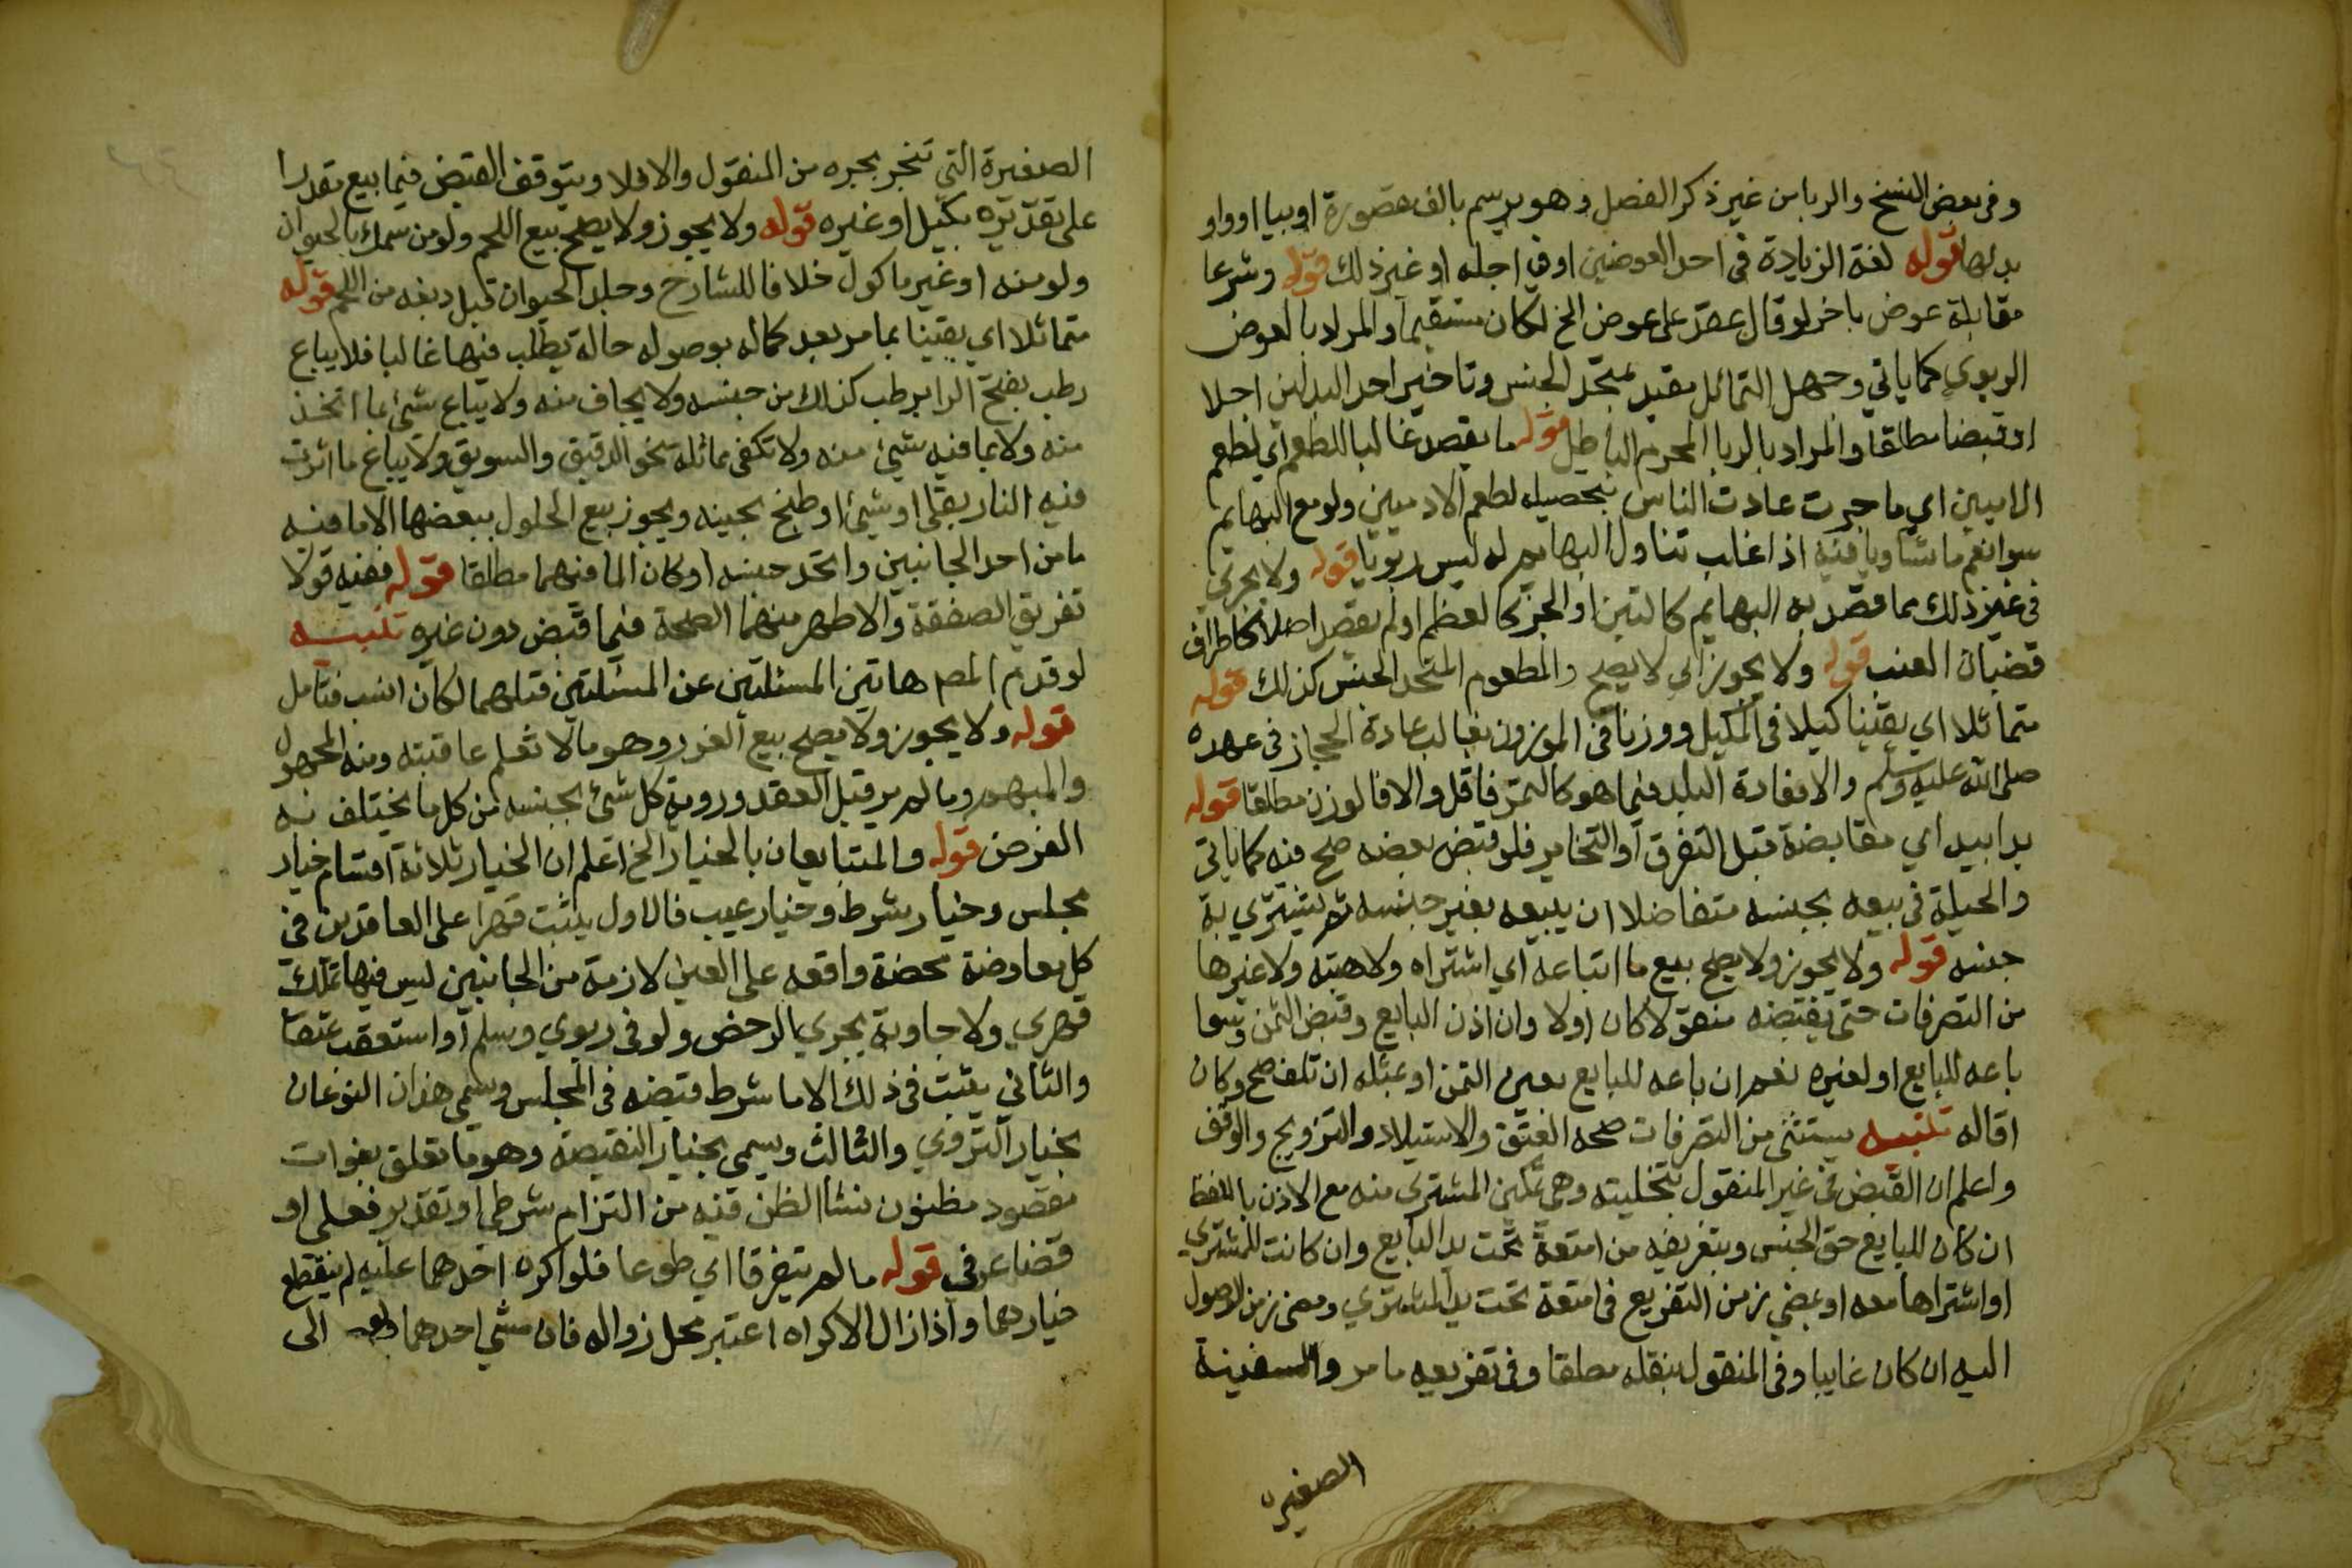 وفى بعض النسخ والربا من غير ذكر الفصل وهو يرسم بالف مقصورة او بيا او واو
بدلها قوله لغة الزيادة فى احد العوضين او فى اجله او غير ذلك قوله وشرعا
مقابلة عوض باخر لو قال عقد على عوض الخ لكان مستقيما والمراد بالعوض
الربوي كما ياتي وجهل التماثل مقيد بمتحد الجنس وتاخير احد البدلين اجلا
او قبضا مطلقا والمراد بالربا المحرم الباطل قوله ما يقصد غالبا للطعم اي لطعم
الادميين اي ما جرت عادت الناس بتحصيله لطعم الادميين ولو مع البهايم
سوا نعم ما تساويا فيه اذا غلب تناول البهايم له ليس ربويا قوله ولا يجري
فى غير ذلك مما قصد به البهايم كالتبن او الجن كالعظم او لم يقصد اصلا كاطراف
قضبان العنب قوله ولا يجوز اي لا يصح والمطعوم المتحد الجنس كذلك قوله
متماثلا اي يقينا كيلا فى المكيل ووزنا فى الموزون بغالب عادة الحجاز فى عهده
صلى الله عليه وسلم والا فعادة البلد فيما هو كالتمر فاقل والا فالوزن مطلقا قوله
يدا بيد اي مقابضة قبل التفرق او التخاير فلو قبض بعضه صح فيه كما ياتي
والحيلة فى بيعه بجنسه متفاضلا ان يبيعه بغير جنسه ثم يشتري به
جنسه قوله ولا يجوز ولا يصح بيع ما ابتاعه اي اشتراه ولا هبته ولا غيرها
من التصرفات حتى يقبضه منقولا كان اولا وان اذن البايع وقبض الثمن وسوا
باعه للبايع او لغيره نعم ان باعه للبايع بعين الثمن او بمثله ان تلف صح وكان
اقاله تنبيه يستثنى من التصرفات صحه العتق والاستيلاد والتزويج والوقف
واعلم ان القبض فى غير المنقول بتخليته وهى تمكين المشترى منه مع الاذن باللفظ
ان كان للبايع حق الحبس وبتفريغه من امتعة تحت يد البايع وان كانت للمشتري
او اشتراها معه او بمضي زمن التفريع فى امتعة تحت يد المشتري ومضى زمن الوصول
اليه ان كان غايبا وفى المنقول بنقله مطلقا وفى تفريعه ما مر والسفينة
الصغيره
الصغيرة التي تنجر بجره من المنقول والا فلا ويتوقف القبض فيما بيع مقدرا
على تقديره بكيل او غيره قوله ولا يجوز ولا يصح بيع اللحم ولو من سمك بالحيوان
ولو منه او غير ماكول خلافا للشارح وجلد الحيوان قبل دبغه من اللحم قوله
متماثلا اي يقينا بما مر بعد كماله بوصوله حالة يطلب فيها غالبا فلا يباع
رطب بفتح الرا برطب كذلك من جنسه ولا بجاف منه ولا يباع شئ بما اتخذ
منه ولا بما فيه شئ منه ولا تكفى مماثلة نحو الدقيق والسويق ولا يباع ما اثرت
فيه النار بقلي او شيئ او طبخ بجنسه ويجوز بيع الخلول ببعضها الا ما فيه
ما من احد الجانبين واتحد جنسه او كان الما فيهما مطلقا قوله ففيه قولا
تفريق الصفقة والاظهر منهما الصحة فيما قبض دون غيره تنبيه
لو قدم المص هاتين المسئلتين عن المسئلتين قبلهما لكان انسب فتامل
قوله ولا يجوز ولا يصح بيع الغرر وهو ما لا تعلم عاقبته ومنه المجهول
والمبهم وما لم ير قبل العقد وروية كل شئ بحسبه من كل ما يختلف به
الغرض قوله والمتبايعان بالخيار الخ اعلم ان الخيار ثلاثة اقسام خيار
مجلس وخيار شرط وخيار عيب فالاول يثبت قهرا على العاقدين فى
كل معاوضة محضة واقعه على العين لازمة من الجانبين ليس فيها تملك
قهري ولا جاوية مجري الرخص ولو فى ربوي وسلم او استعقب عتقا
والثاني يثبت فى ذلك الا ما شرط قبضه فى المجلس وسمى هذان النوعان
بخيار التروي والثالث ويسمى بخيار النقيصة وهو ما تعلق بفوات
مقصود مظنون نشا الظن فيه من التزام شرطي او تقدير فعلي او
قضا عرفى قوله ما لم يتفرقا اي طوعا فلو اكره احدهما عليه لم ينقطع
خيارهما واذا زال الاكراه اعتبر محل زواله فان مشي احدهما الى